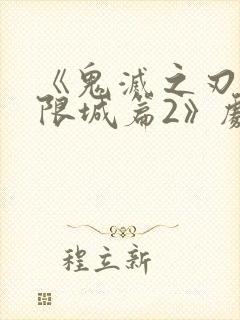 《鬼滅之刃
限城篇2》劇
程立新